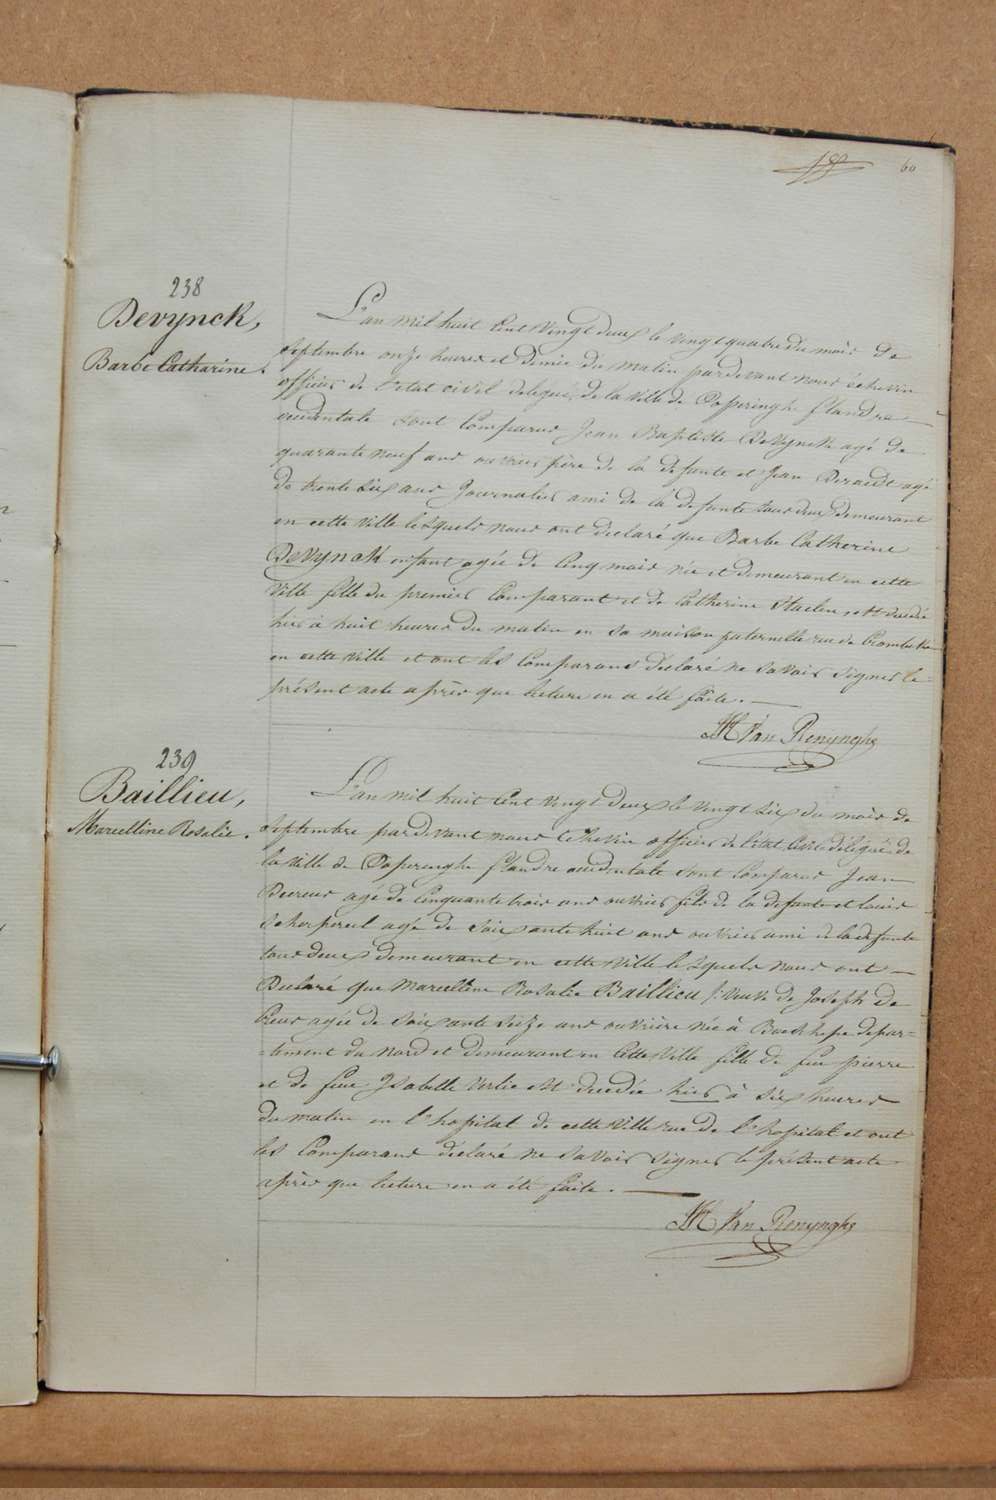 60
238
Devynck,
Barbe Catharine.
L'an mil huit cent vingt deux le vingt quatre du mois de
Septembre onze heures et demie du matin pardevant nous échevin
officier de l'état civil delegué, de la ville de Poperinghe flandre
occidentale sont comparus Jean Baptiste DeVynck agé de
quarante neuf ans ouvrier père de la defunte et Jean agé
de trente six ans Journalier ami de la defunte tous deux demeurant
en cette ville lesquels nous ont déclaré que Barbe Catherine
DeVynck enfant agée de cinq mois née et demeurant en cette
ville fille du premier comparant et de Catherine Staelen, est decedée
hier à huit heures du matin en sa maison paternelle rue de
en cette ville et ont les comparans déclaré ne savoir signer le
présent acte après que lecture en a été faite.
Van Renynghe
239
Baillieu,
Marcelline Rosalie.
L'an mil huit cent vingt deux le vingt six du mois de
Septembre pardevant nous Echevin officier de l'état civil délégué de
la ville de Poperinghe flandre occidentale sont comparus Jean
agé de cinquante trois ans ouvrier fils de la defunte et Louis
Scherpereel agé de soixante huit ans ouvrier ami de la defunte
tous deux demeurant en cette ville lesquels nous ont
Declaré que Marcelline Rosalie Baillieu veuve de Joseph De
agée de soixante seize ans ouvrière née à Boeschepe depar=
=tement du Nord et demeurant en cette ville fille de feu pierre
et de feue Isabelle Verlie est decedée hier à six heures
du matin en l'hopital de cette ville rue de l'hopital et ont
les comparans déclaré ne savoir signer le présent acte
après que lecture en a été faite.
Van Renynghe